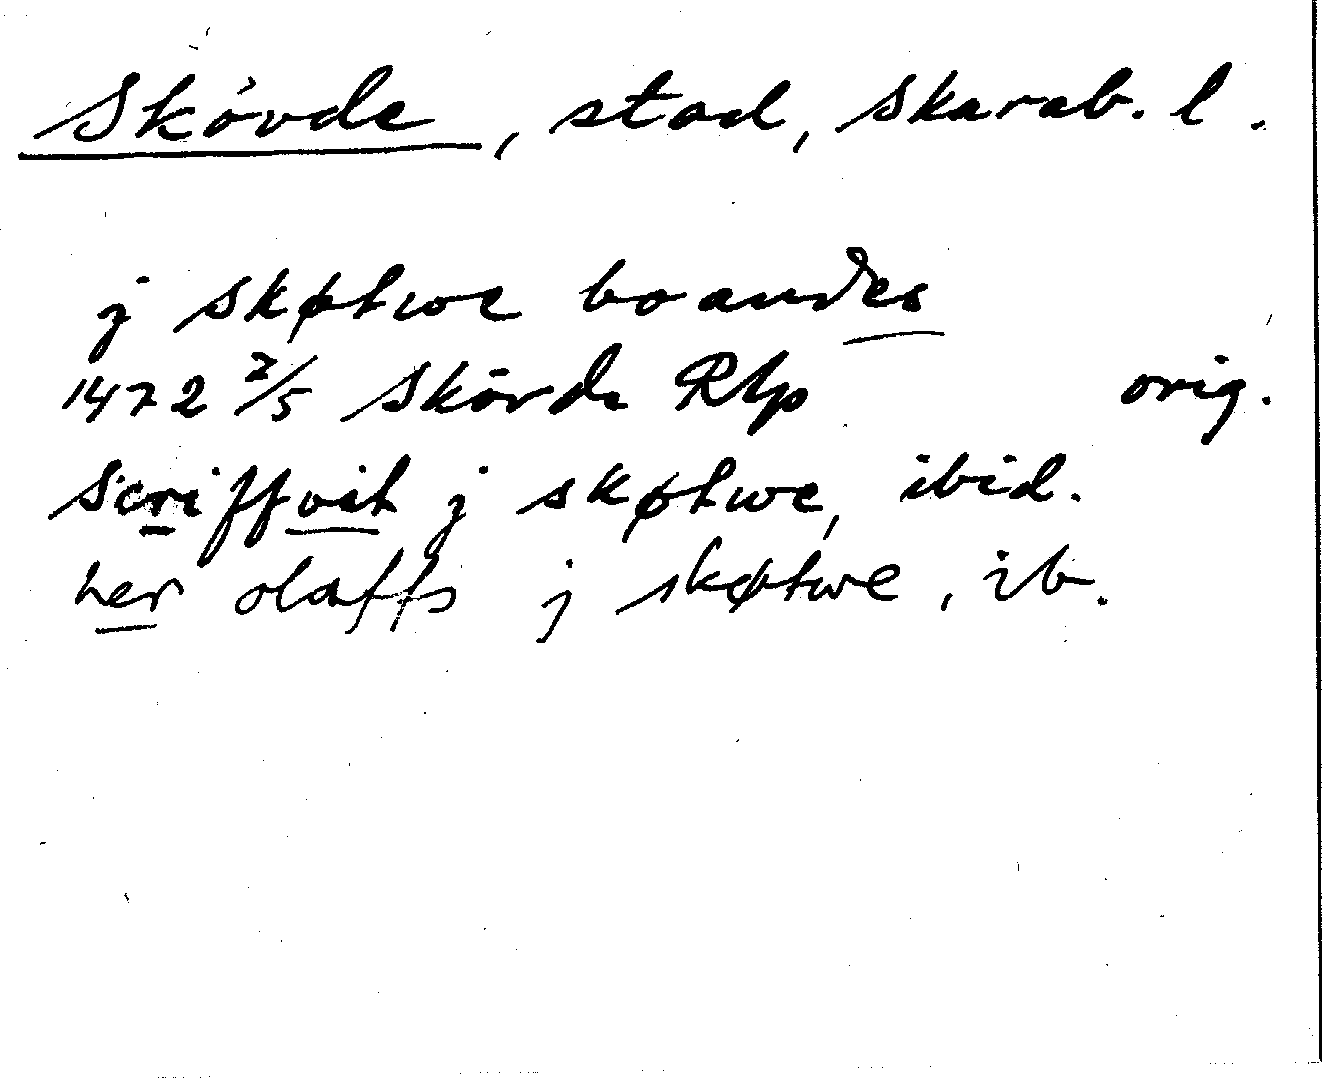 Skövde, stad, Skarab. l.
j skøtwe boandes
1472 7/5 Skövde RAp orig.
Scriffvit j skøtwe, ibid.
her olaffs j skøtwe, ib.